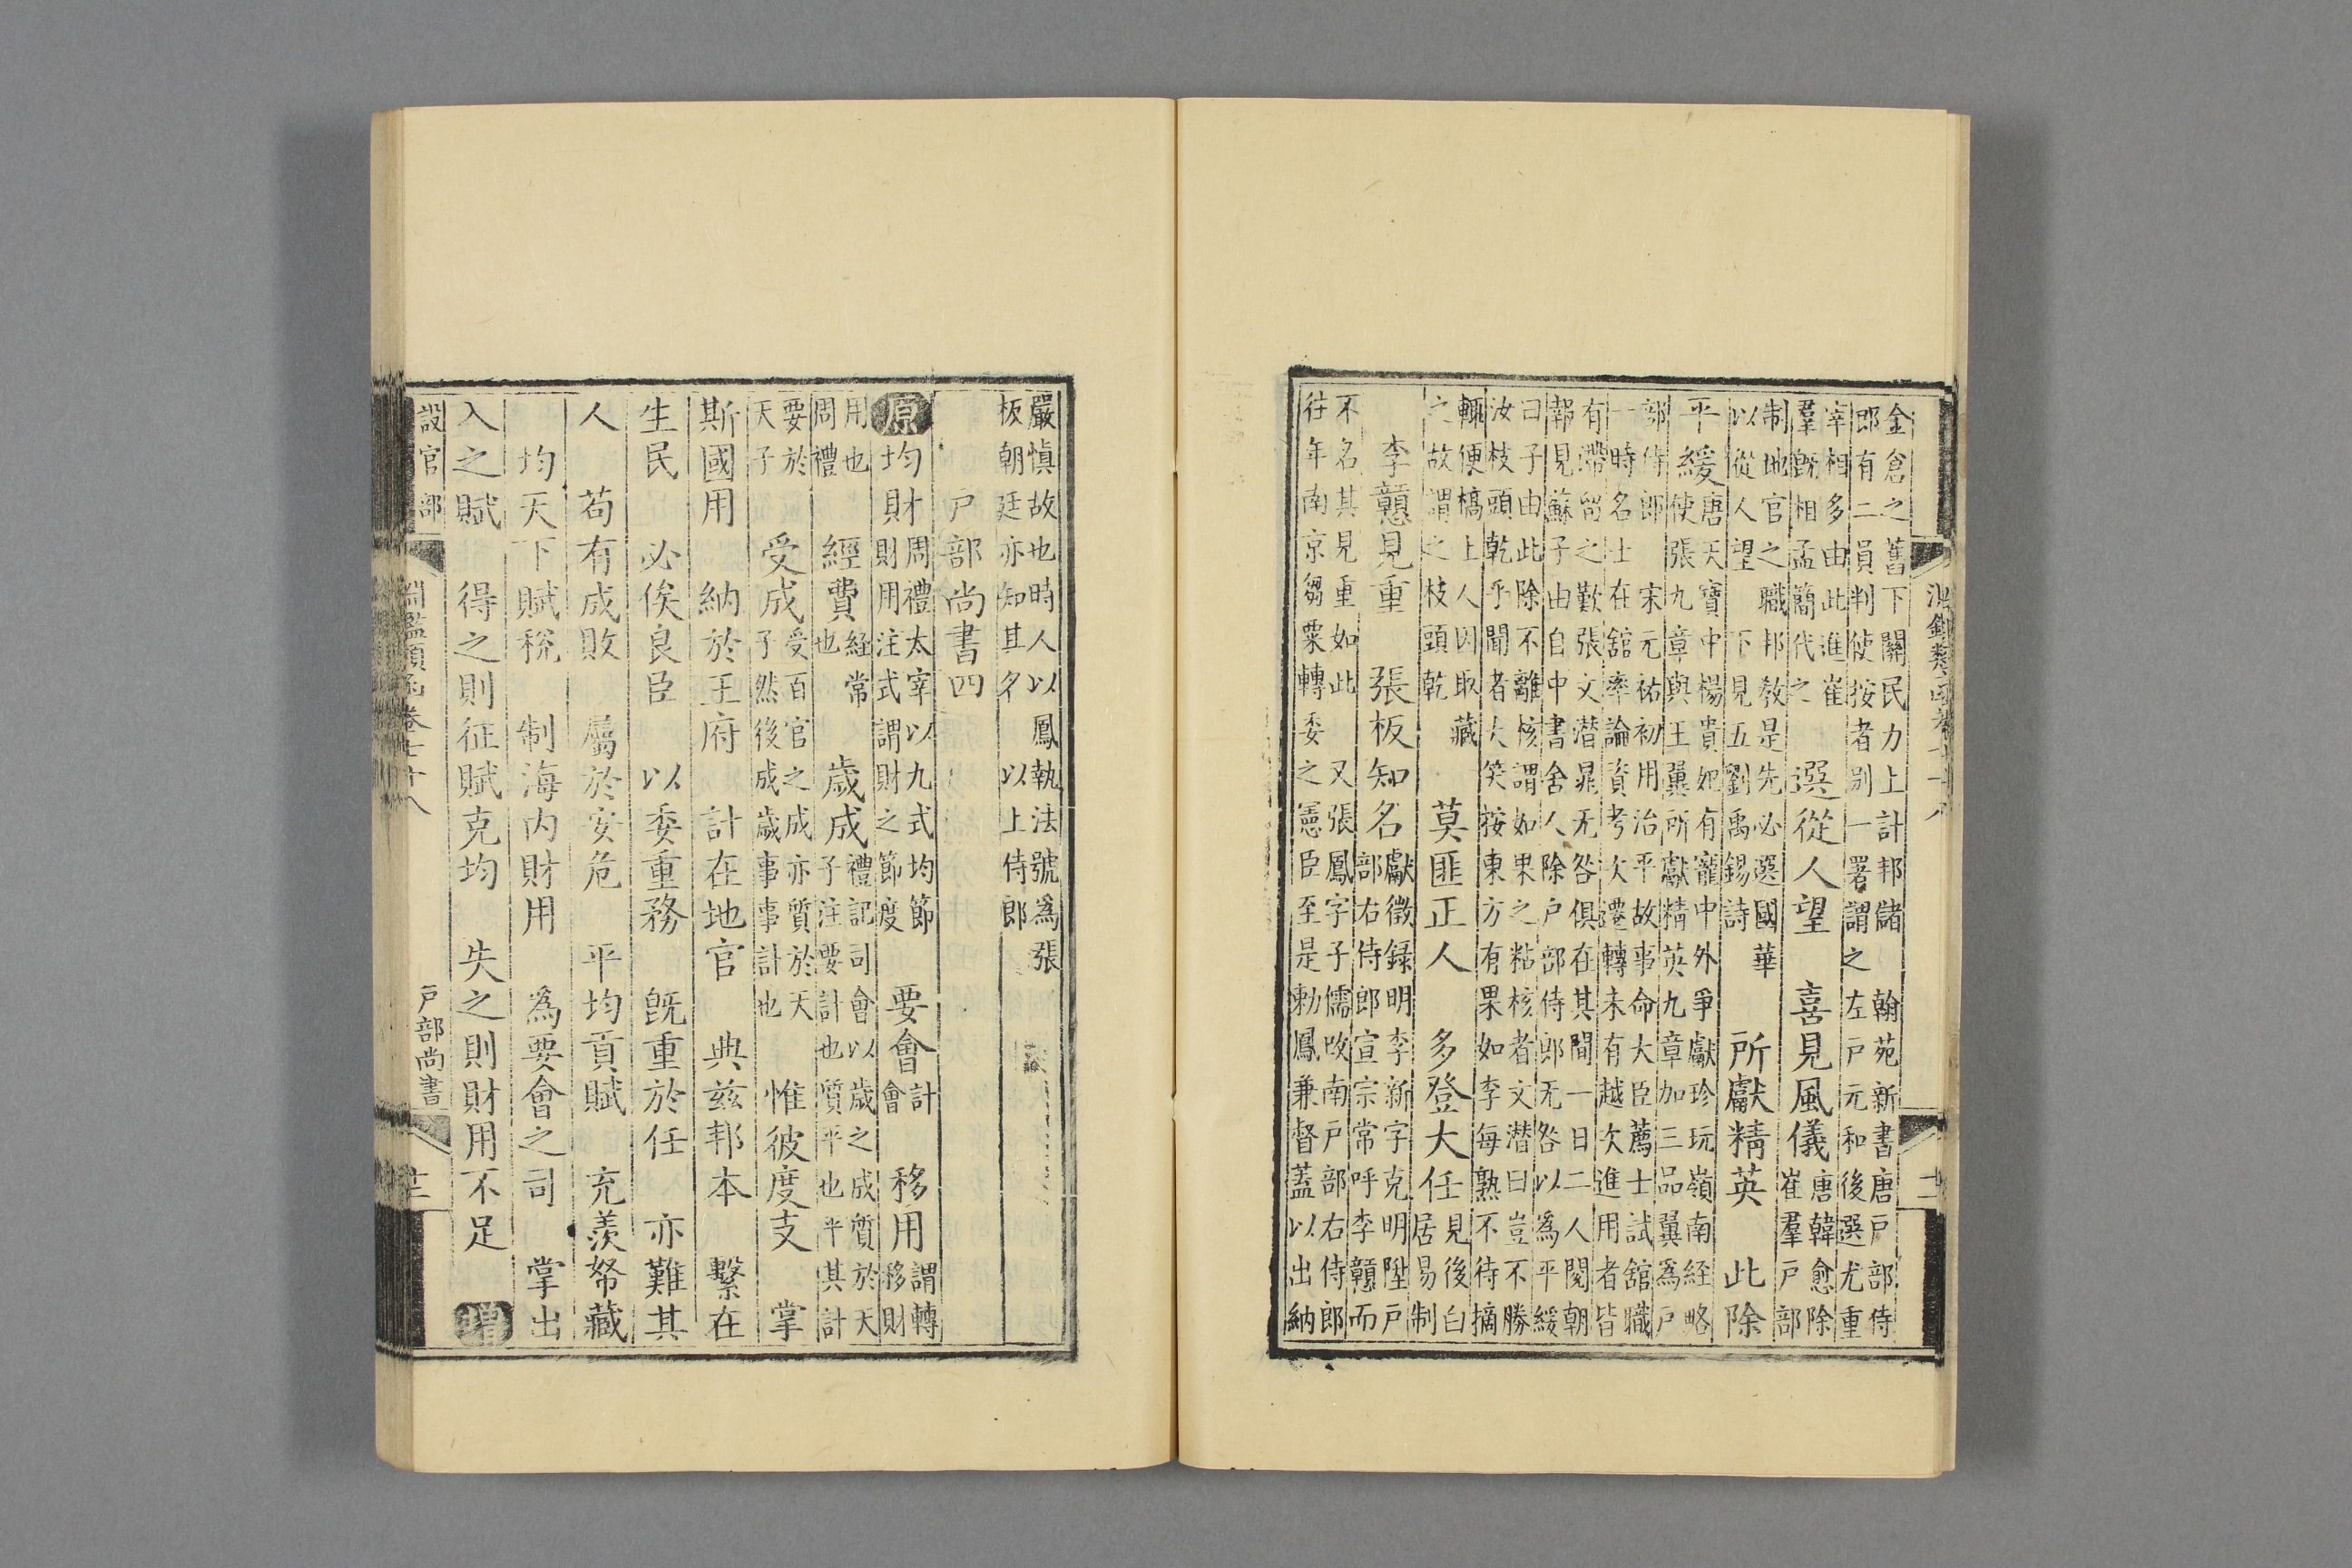 金倉之舊下關民力上計邦儲 翰苑新書唐戸部侍
郎有二員判使按者别一署謂之 左戸元和後選尤重
宰相多由此進崔
羣既相孟簡代之 選從人望 喜見風儀 唐韓愈除
崔羣戸部
制地官之職邦敎是先必選國華
以從人望 下見五劉禹錫詩 所獻精英 此除
平緩 唐天寶中楊貴妃有寵中外爭獻珍玩嶺南經略
使張九章與王翼所獻精英九章加三品翼爲戸
部侍郎 宋元祐初用治平故事命大臣薦士試舘職
一時名士在舘率論資考次遷轉未有越次進用者皆
有滯留之歎張文潜晁无咎俱在其間一日二人閱朝
報見蘇子由自中書舍人除户部侍郎无咎以爲平緩
曰子由此除不離核謂如果之粘核者文潜曰豈不勝
汝枝頭乾乎聞者大笑按東方有果如李每熟不待摘
輒便槁上人因取藏
之故謂之枝頭乾 莫匪正人 多登大任 見後白
居易制
李戇見重 張板知名 獻徵録明李新字克明陞戸
部右侍郎宣宗常呼李戇而
不名其見重如此 又張鳳字子儒改南戸部右侍郎
往年南京芻粟轉委之憲臣至是勅鳳兼督蓋以出納
十八
嚴愼故也時人以鳳執法號爲張
板朝廷亦知其名 以上侍郎
戸部尚書四
原 均財 周禮太宰以九式均節
財用注式謂財之節度 要會 計
會 移用 謂轉
移財
用也
周禮 經費 經常
也 歲成 禮記司會以歲之成質於天
子注要計也質平也平其計
要於
天子 受成 受百官之成亦質於天
子然後成歲事事計也 惟彼度支 掌
斯國用 納於王府 計在地官 典兹邦本 繫在
生民 必俟良臣 以委重務 旣重於任 亦難其
人 苟有成敗 屬於安危 平均貢賦 充羨帑藏
均天下賦稅 制海内財用 爲要會之司 掌出
入之賦 得之則征賦克均 失之則財用不足 增
設官部 淵鑑類函卷七十八 戸部尚書